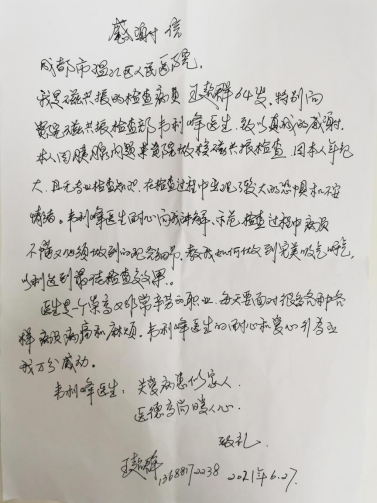 感谢信
成都市温江区人民医院,
我是磁共振的检查病员 王超群 64岁. 特别向
贵院磁共振检查部韦利峰医生,致以真诚的感谢.
本人因胰腺问题来贵院做核磁共振检查, 因本人年纪
大, 且无专业检查知识, 在检查过程中出现了较大的恐惧和不安
情绪。韦利峰医生耐心向我讲解、示范检查过程中病员
不懂又必须做到的配合细节, 教我如何做到完美吸气呼气,
以利达到最佳检查效果。
医生是一个崇高又非常辛苦的职业, 每天要面对很多各种各
样病员病痛和麻烦. 韦利峰医生的耐心和爱心
我万分感动.
韦利峰医生, 关爱病患似家人.
医德高尚暖人心.
致礼.
王超群 13688172238 2021年6.27.